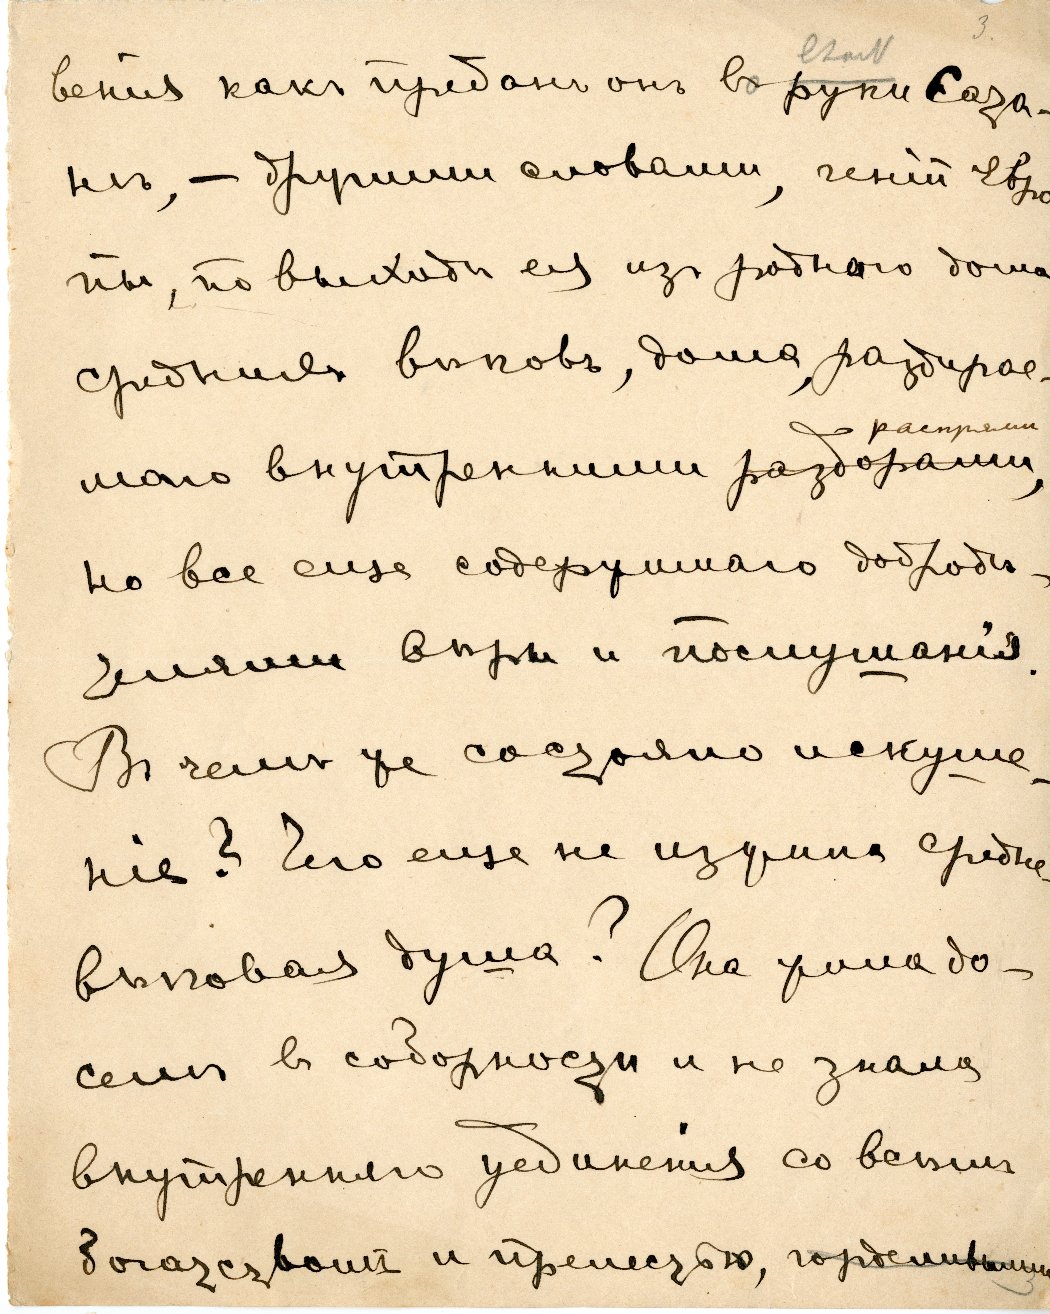 3.
венія какъ преданъ онъ во руки Сата-
нѣ, — другими словами, геній Евро
пы, по выходѣ ея изъ роднаго дома
среднихъ вѣковъ, дома, раздирае-
маго внутренними раздорами,
распрями
но все еще содержимаго добродѣ-
телями вѣры и послушанія.
Въ чемъ же состояло искуше-
ніе? Чего еще не изжила средне-
вѣковая душа? Она жила до-
селѣ въ соборности и не знала
внутренняго уединенія со всѣмъ
богатствомъ и прелестью,